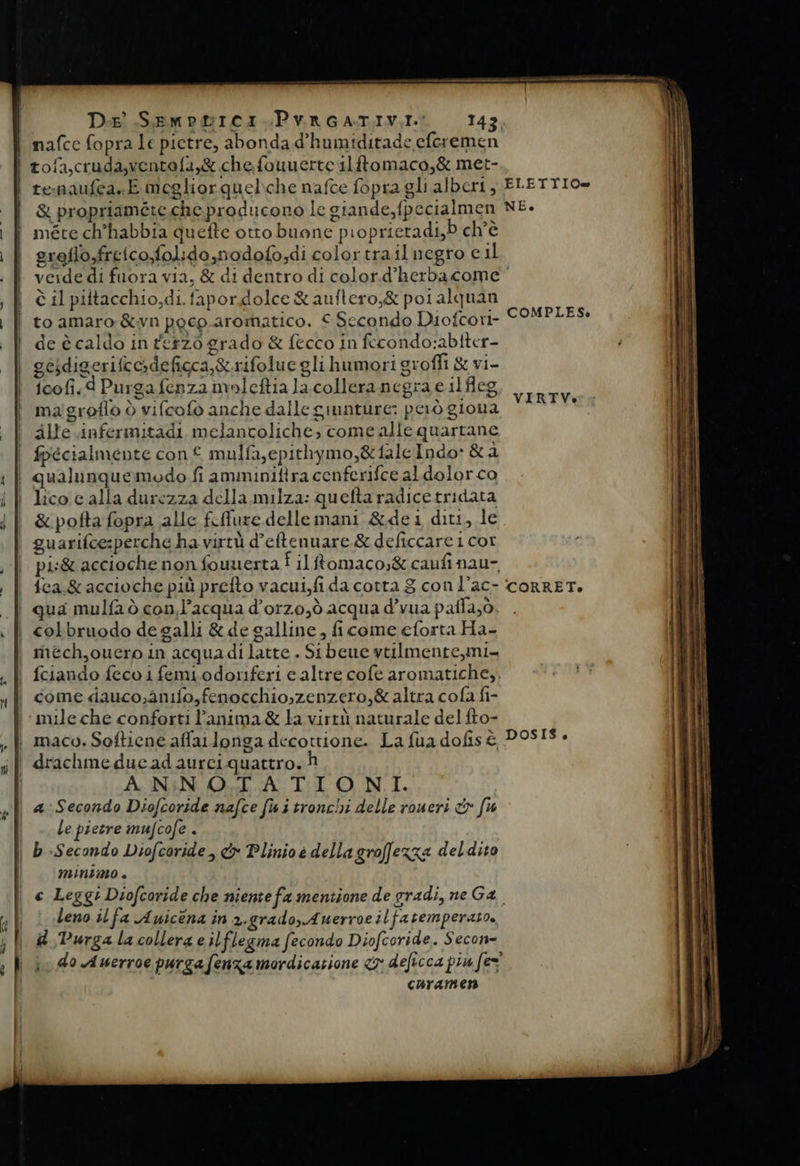 De' Semplici Pvrgativi. 143.
nasce sopra le pietre, abonda d'humiditade escremen
tosa,cruda,ventosa,& che souuerte il stomaco,& met-
te nausea. E meglior quel che nasce sopra gli alberi, ELETTIO=
& propriamẽte che producono le giande,specialmen NE.
mẽte ch'habbia queste otto buone proprietadi,b ch'è
grosso,fresco,solido,nodoso,di color tra il negro e il
verde di fuora via, & di dentro di color d'herba come
è il pistacchio,di sapor dolce & austero,& poi alquan
to amaro & vn poco aromatico. c Secondo Dioscori- COMPLES.
de è caldo in terzo grado & secco in secondo:abster-
ge,digerisce,desicca,& risolue gli humori grossi & vi-
scosi. d Purga senza molestia la collera negra e il fleg
ma grosso ò viscoso anche dalle giunture: però gioua VIRTV.
alle infermitadi melancoliche, come alle quartane
specialmente con e mulsa,epithymo,& sale Indo: & a
qualunque modo si amministra cenferisce al dolor co
lico e alla durezza della milza: questa radice tridata
& posta sopra alle fessure delle mani & dei diti, le
guarisce:perche ha virtù d'estenuare & desiccare i cor
pi:& accioche non souuerta f il stomaco,& causi nau-
sea,& accioche più presto vacui,si da cotta g con l'ac- CORRET.
qua mulsa ò con l'acqua d'orzo,ò acqua d'vua passa,ò
col bruodo de galli & de galline, si come esorta Ha-
mech,ouero in acqua di latte. Si beue vtilmente,mi-
sciando seco i semi odoriferi e altre cose aromatiche,
come dauco,aniso,fenocchio,zenzero,& altra cosa si-
mile che conforti l'anima & la virtù naturale del sto-
maco. Sostiene assai longa decottione. La sua dosis è DOSIS.
drachme due ad aurei quattro. h
ANNOTATIONI.
a Secondo Dioscoride nasce su i tronchi delle roueri & su
le pietre muscose.
b Secondo Dioscoride, & Plinio è della grossezza del dito
minimo.
c Leggi Dioscoride che niente fa mentione de gradi, ne Ga
leno il fa Auicena in 2.grado, Auerroe il fa temperato.
d Purga la collera e il flegma secondo Dioscoride. Secon-
do Auerroe purga senza mordicatione & desicca piu se=
curamen